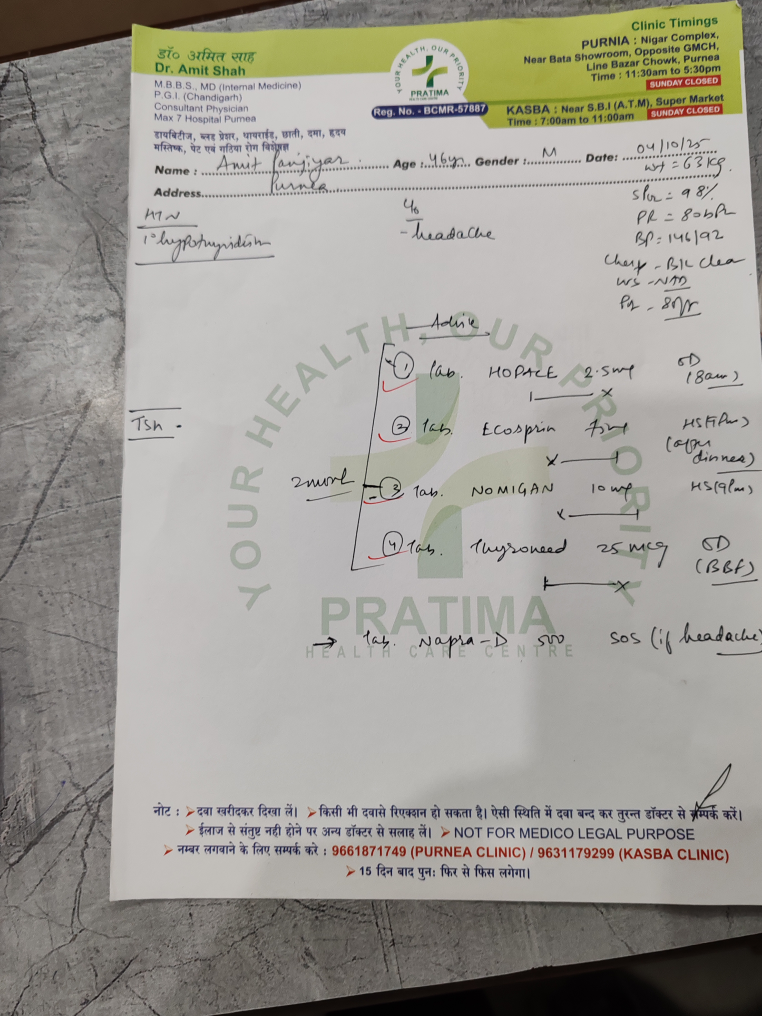 डॉ० अमित साह
Dr. Amit Shah
M.B.B.S., MD (Internal Medicine)
P.G.I. (Chandigarh)
Consultant Physician
Max 7 Hospital Purnea
डायबिटीज, ब्लड प्रेशर, थायराईड, छाती, दमा, हृदय
मस्तिष्क, पेट एवं गठिया रोग विशेषज्ञ
YOUR HEALTH, OUR PRIORITY
PRATIMA
HEALTH CARE CENTRE
Reg. No. - BCMR-57887
Clinic Timings
PURNIA : Nigar Complex,
Near Bata Showroom, Opposite GMCH,
Line Bazar Chowk, Purnea
Time : 11:30am to 5:30pm
SUNDAY CLOSED
KASBA : Near S.B.I (A.T.M), Super Market
Time : 7:00am to 11:00am SUNDAY CLOSED
Name : Amit Panjiyar Age : 46yr Gender : M Date: 04/10/25
Address Purnea
wt = 63 kg
HTN
1° hypothyroidism
c/o
- headache
SPO2 = 98%
PR = 80 bpm
BP: 146/92
Chest - B/L clear
- NAD
Advice
1 Tab. HOPACE 2.5mg OD
(8am)
TSH -
2 Tab. Ecosprin 75mg HS(9pm)
(after
dinner)
3 Tab. NOMIGAN 10 mg HS(9pm)
4 Tab. Thyroneed 25 mcg OD
(BBF)
→ Tab. Napra-D 500 SOS (if headache)
YOUR HEALTH, OUR PRIORITY
PRATIMA
HEALTH CARE CENTRE
नोट : ➢ दवा खरीदकर दिखा लें। ➢ किसी भी दवासे रिएक्शन हो सकता है। ऐसी स्थिति में दवा बन्द कर तुरन्त डॉक्टर से सम्पर्क करें।
➢ ईलाज से संतुष्ट नही होने पर अन्य डॉक्टर से सलाह लें। ➢ NOT FOR MEDICO LEGAL PURPOSE
➢ नम्बर लगवाने के लिए सम्पर्क करे : 9661871749 (PURNEA CLINIC) / 9631179299 (KASBA CLINIC)
➢ 15 दिन बाद पुनः फिर से फिस लगेगा।